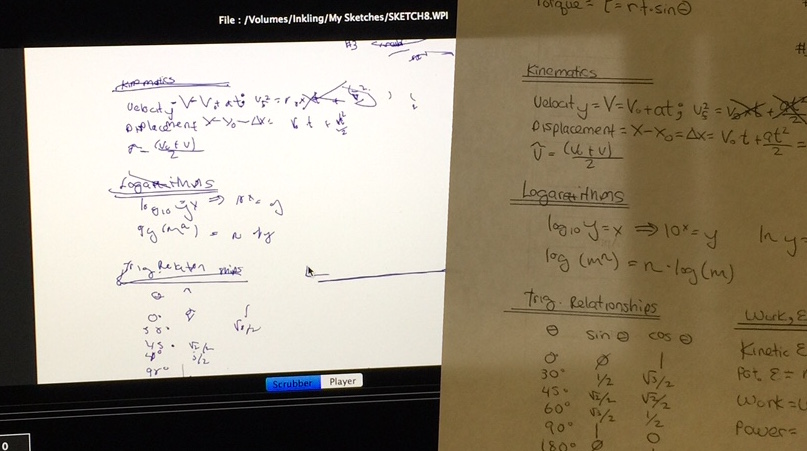 File : /Volumes/Inkling/My Sketches/SKETCH8.WPI
#3
Kinematics
Velocity = V = V₀ + at;
Displacement X-X₀ = Δx = V₀ t +
v̄ = (V₀ + v)/2
Logarithms
log₁₀ y = x ⇒ 10ˣ = y
Trig Relation
0°
45° √2/2
90° 1
Scrubber Player
0
Torque = τ = rf·sinΘ
#
Kinematics
Velocity = V = V₀ + at;
Displacement = X-X₀ = Δx = V₀t + at²/2 =
(V₀ + v)/2
Logarithms
log₁₀ y = x ⇒ 10ˣ = y ln y =
log (mⁿ) = n · log(m)
Trig. Relationships
Θ sin Θ cos Θ
0° ∅ 1
30° 1/2 √3/2
45° √2/2 √2/2
60° √3/2 1/2
90° 1 0
180° ∅
Work, E
Kinetic E
Pot. E =
Work =
Power =